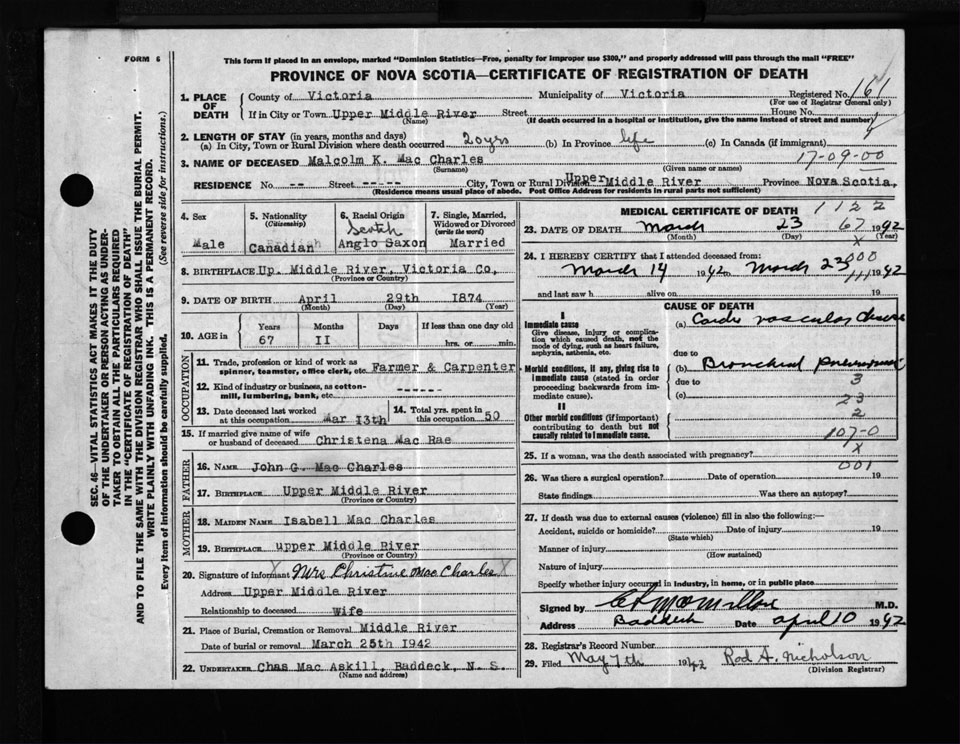 FORM 6
This form if placed in an envelope, marked "Dominion Statistics—Free, penalty for improper use $300," and properly addressed will pass through the mail "FREE"
PROVINCE OF NOVA SCOTIA—CERTIFICATE OF REGISTRATION OF DEATH
SEC. 46—VITAL STATISTICS ACT MAKES IT THE DUTY
OF THE UNDERTAKER OR PERSON ACTING AS UNDER-
TAKER TO OBTAIN ALL THE PARTICULARS REQUIRED
IN THE "CERTIFICATE OF REGISTRATION OF DEATH"
AND TO FILE THE SAME WITH THE DIVISION REGISTRAR WHO SHALL ISSUE THE BURIAL PERMIT.
WRITE PLAINLY WITH UNFADING INK. THIS IS A PERMANENT RECORD.
Every item of information should be carefully supplied. (See reverse side for instructions.)
1. PLACE OF DEATH County of Victoria Municipality of Victoria Registered No. 161
(For use of Registrar General only)
If in City or Town Upper Middle River Street House No.
(Name) (If death occurred in a hospital or institution, give the name instead of street and number)
2. LENGTH OF STAY (in years, months and days)
(a) In City, Town or Rural Division where death occurred 20 yrs (b) In Province life (c) In Canada (if immigrant)
17-09-00
3. NAME OF DECEASED Malcolm K. Mac Charles
(Surname) (Given name or names)
RESIDENCE No. -- Street ----- City, Town or Rural Division Upper Middle River Province Nova Scotia,
(Residence means usual place of abode. Post Office Address for Residents in rural parts not sufficient)
4. Sex Male
5. Nationality (Citizenship) Canadian
6. Racial Origin Scotch Anglo Saxon
7. Single, Married, Widowed or Divorced (write the word) Married
8. BIRTHPLACE Up. Middle River, Victoria Co,
(Province or Country)
9. DATE OF BIRTH April 29th 1874
(Month) (Day) (Year)
10. AGE in Years Months Days If less than one day old
67 II hrs. or min.
OCCUPATION
11. Trade, profession or kind of work as spinner, teamster, office clerk, etc. Farmer & Carpenter
12. Kind of industry or business, as cotton-mill, lumbering, bank, etc. ------
13. Date deceased last worked at this occupation Mar 13th 14. Total yrs. spent in this occupation 50
15. If married give name of wife or husband of deceased Christena Mac Rae
FATHER
16. NAME John G. Mac Charles
17. BIRTHPLACE Upper Middle River
(Province or Country)
MOTHER
18. MAIDEN NAME Isabell Mac Charles
19. BIRTHPLACE upper Middle River
(Province or Country)
20. Signature of informant X Mrs Christine Mac Charles X
Address Upper Middle River
Relationship to deceased Wife
21. Place of Burial, Cremation or Removal Middle River
Date of burial or removal March 25th 1942
22. UNDERTAKER Chas Mac Askill, Baddeck, N. S.
(Name and address)
MEDICAL CERTIFICATE OF DEATH 1122
23. DATE OF DEATH March 23 67 1942
(Month) (Day) X (Year)
24. I HEREBY CERTIFY that I attended deceased from:
March 14 1942 to March 23 1942
and last saw h alive on 19
CAUSE OF DEATH
I
Immediate cause
Give disease, injury or complication which caused death, not the mode of dying, such as heart failure, asphyxia, asthenia, etc.
(a) Cardio vascular disease
due to
Morbid conditions, if any, giving rise to immediate cause (stated in order proceeding backwards from immediate cause).
(b) Bronchial pneumonia
due to 3
(c) 23
II
Other morbid conditions (if important) contributing to death but not causally related to immediate cause.
2
107-0
X
25. If a woman, was the death associated with pregnancy?
001
26. Was there a surgical operation? Date of operation 19
State findings Was there an autopsy?
27. If death was due to external causes (violence) fill in also the following:—
Accident, suicide or homicide? Date of injury 19
(State which)
Manner of injury
(How sustained)
Nature of injury
Specify whether injury occurred in industry, in home, or in public place
Signed by C L MacMillan M.D.
Address Baddeck Date April 10 1942
28. Registrar's Record Number
29. Filed May 7th 1942 Rod A. Nicholson
(Division Registrar)